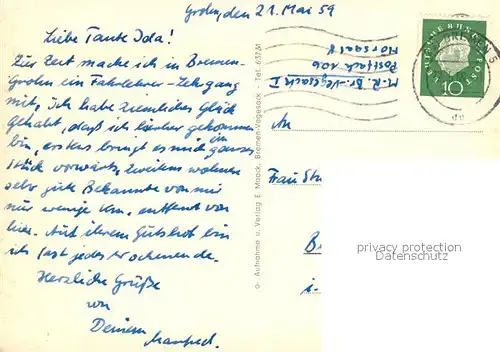 Grohn, den 21. Mai 59
Liebe Tante Ida!
Zur Zeit mache ich in Bremen-
Grohn ein Fahrlehrer-Lehrgang
mit, Ich habe ziemliches Glück
gehabt, daß ich hierher gekommen
bin, erstens bringt es mich ein ganzes
Stück vorwärts, zweitens wohnen
sehr gute Bekannte von mir
nur wenige km. entfernt von
hier. Auf ihrem Gutshof bin
ich fast jedes Wochenende.
Herzliche Grüße
von
Deinem
Manfred.
Aufnahme u. Verlag E. Maack, Bremen-Vegesack · Tel. 6
M.R. Br.-Vegesack I
Postfach 106
Hörsaal
DEUTSCHE BUNDESPOST
10
An
Frau
privacy protection
Datenschutz